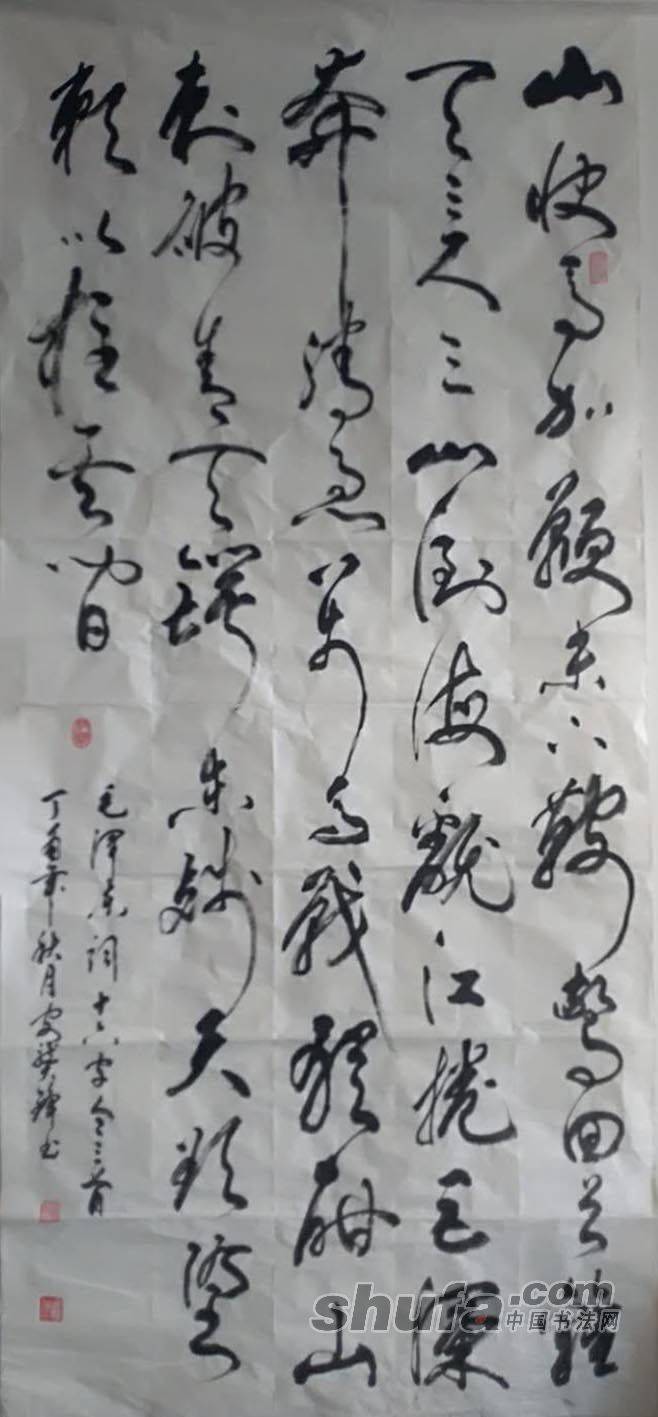 山快马加鞭未下鞍驚回首離
天三尺三山倒海翻江捲巨澜
奔騰急万马戰犹酣山
刺破青天锷未残天欲堕
赖以柱其间
毛泽东词十六字令三首
丁酉年秋月书
shufa.com
中国书法网